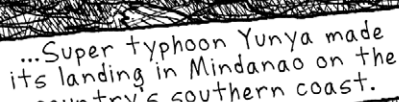 ...Super typhoon Yunya made
its landing in Mindanao on the
country's southern coast.